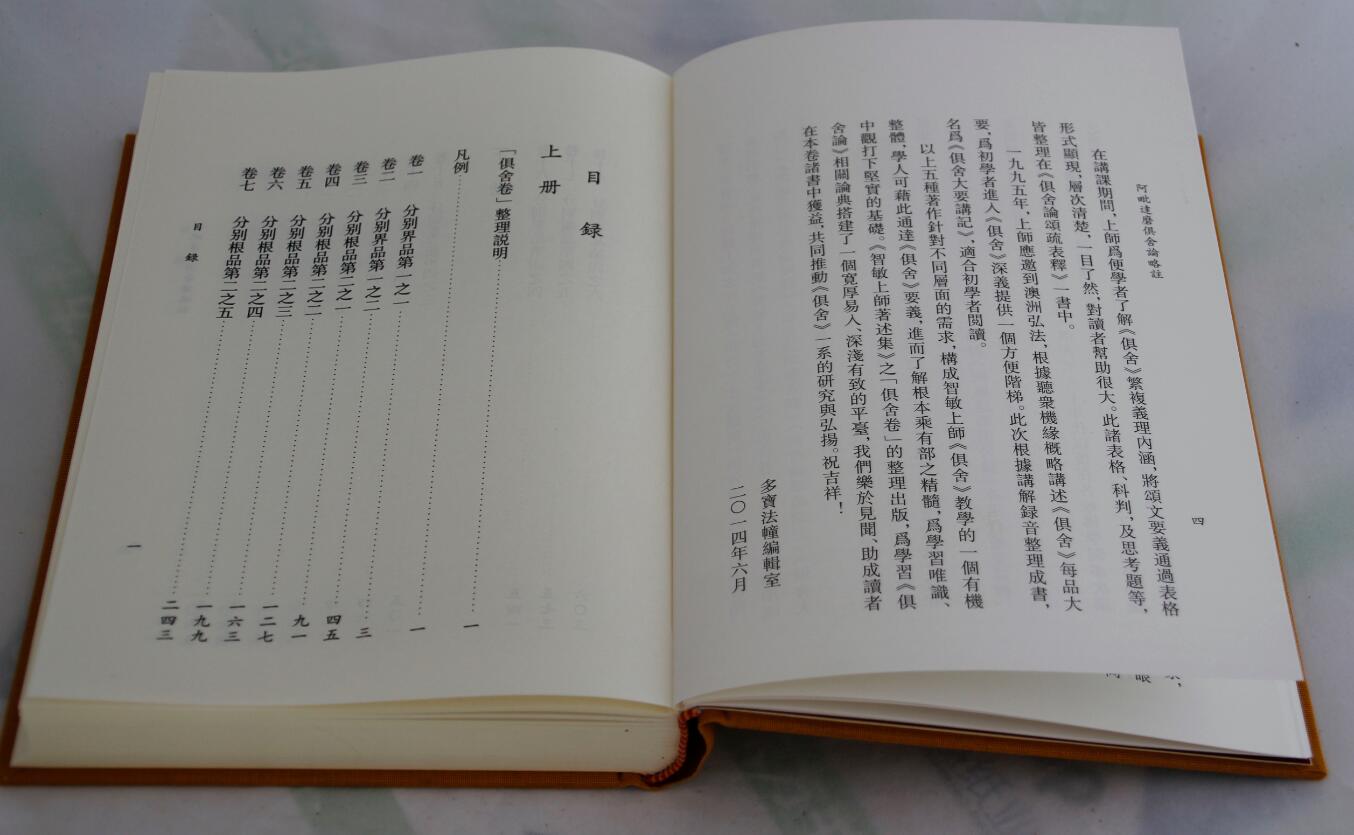 阿毗達磨俱舍論略註
在講課期間，上師爲便學者了解《俱舍》繁複義理內涵，將頌文要義通過表格
形式顯現，層次清楚，一目了然，對讀者幫助很大。此諸表格、科判，及思考題等，
皆整理在《俱舍論頌疏表釋》一書中。
一九九五年，上師應邀到澳洲弘法，根據聽衆機緣概略講述《俱舍》每品大
要，爲初學者進入《俱舍》深義提供一個方便階梯。此次根據講解録音整理成書，
名爲《俱舍大要講記》，適合初學者閱讀。
以上五種著作針對不同層面的需求，構成智敏上師《俱舍》教學的一個有機
整體，學人可藉此通達《俱舍》要義，進而了解根本乘有部之精髓，爲學習唯識、
中觀打下堅實的基礎。《智敏上師著述集》之「俱舍卷」的整理出版，爲學習《俱
舍論》相關論典搭建了一個寬厚易入、深淺有致的平臺，我們樂於見聞、助成讀者
在本卷諸書中獲益，共同推動《俱舍》一系的研究與弘揚。祝吉祥！
多寶法幢編輯室
二〇一四年六月
四
目録
上册
「俱舍卷」整理説明……一
凡例……一
卷一 分別界品第一之一……三
卷二 分別界品第一之二……四五
卷三 分別根品第二之一……九一
卷四 分別根品第二之二……一二七
卷五 分別根品第二之三……一六三
卷六 分別根品第二之四……一九九
卷七 分別根品第二之五……二四三
目録
一
眼